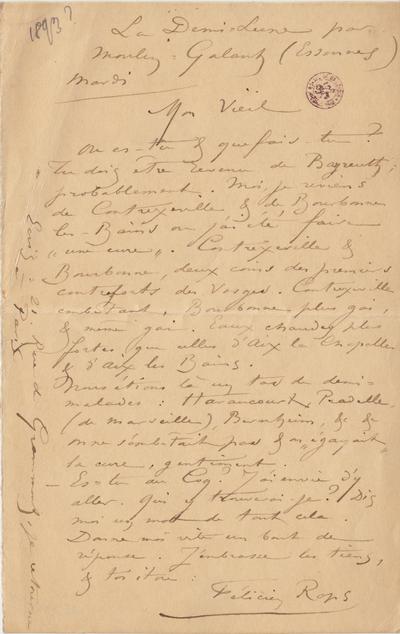 1893?
La Demi-Lune par
Moulin-Galant (Essonnes)
Mardi
Mon Vieil
Ou es-tu & que fais-tu?
Tu dois être revenu de Bayreuth,
probablement. Moi, je reviens
de Contrexeville & de Bourbonne
les-Bains ou j'ai été faire
"une cure". Contrexeville &
Bourbonne, deux coins des premiers
contreforts des Vosges. Contrexeville
embêtant, Bourbonne plus gai,
& même gai. Eaux chaudes plus
fortes que celles d'Aix la Chapelle
& d'Aix les Bains.
Nous étions là un tas de demi-
malades: Haraucourt, Pradelle
(de Marseille), Bernheim, & &
on ne s'embêtait pas & on "égayait"
la cure, gentiment.
– Es-tu au Coq. J'ai envie d'y
aller. Qui y trouverai-je? Dis
moi un mot de tout cela.
Donne moi vite un bout de
réponse. J'embrasse les tiens,
& toi itou:
Félicien Rops
Ecris: 21, Rue de Grammont, je retourne
à Paris